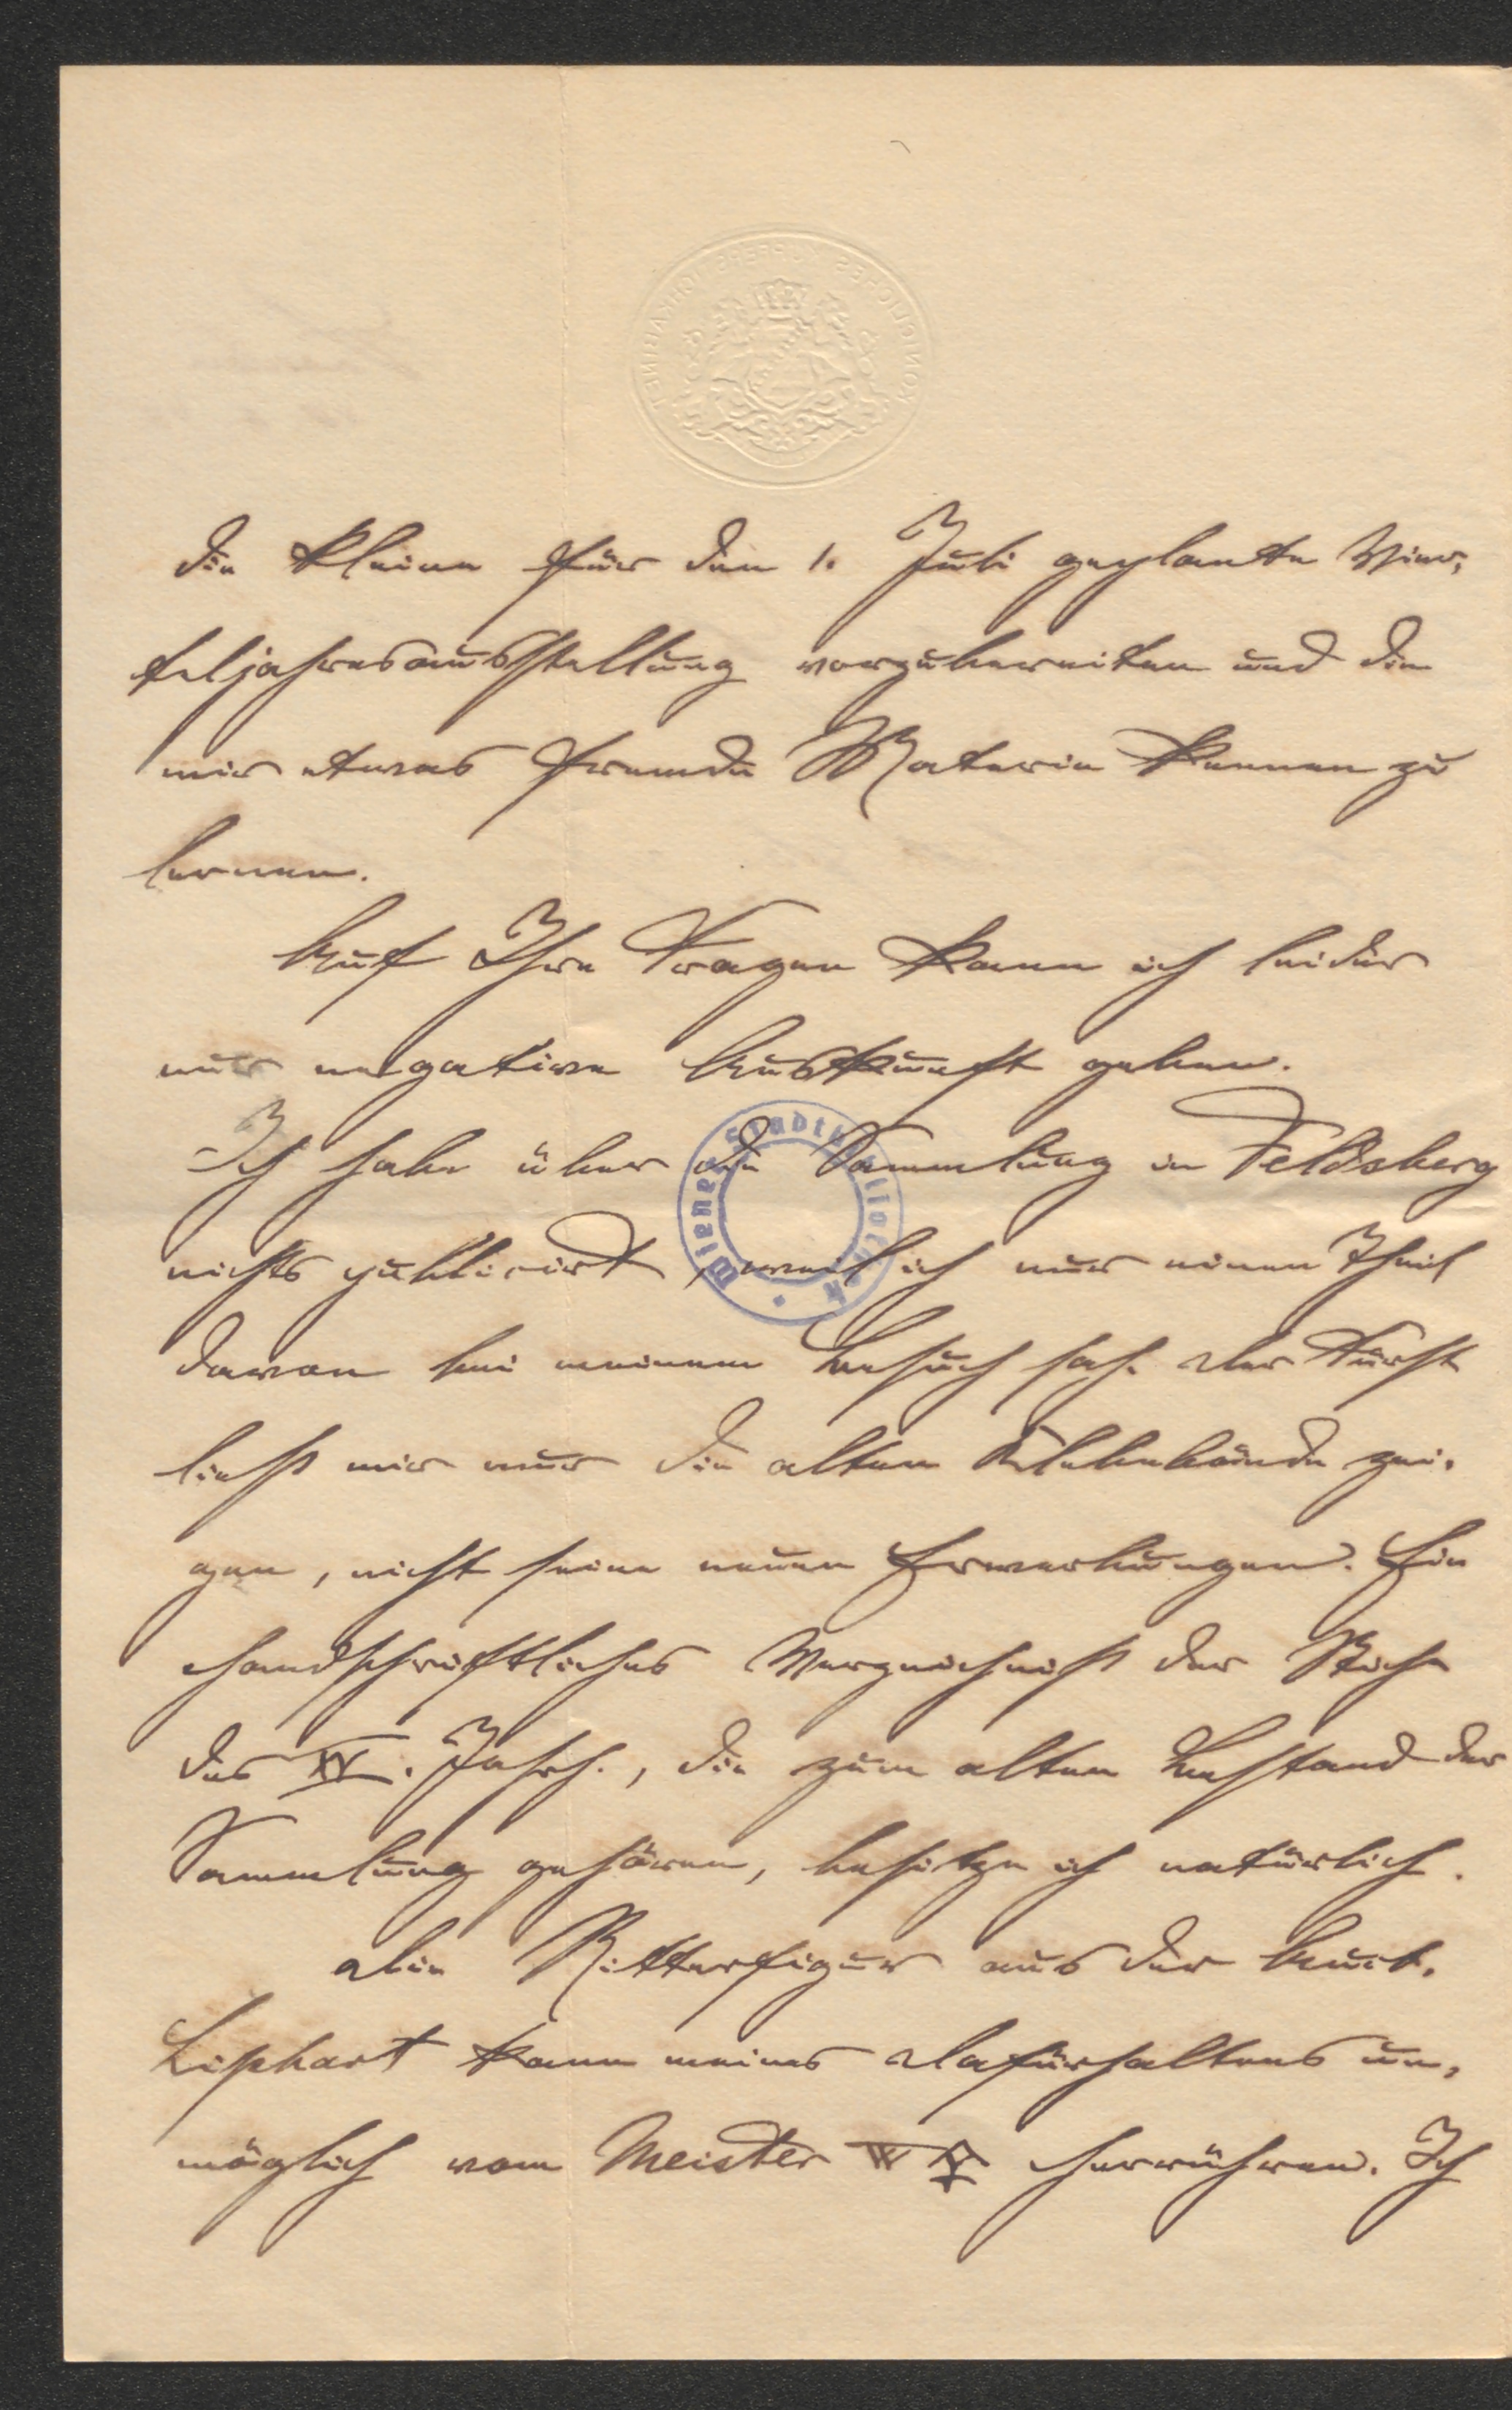 KÖNIGLICHES KUPFERSTICHKABINET
die kleine für den 1. Juli geplante Vier-
teljahresausstellung vorzubereiten und die
mir etwas fremde Materie kennen zu
lernen.
Auf Ihre Fragen kann ich leider
nur negative Auskunft geben.
Ich habe über die Sammlung in Feldsberg
nichts publicirt, weil ich nur einen Theil
davon bei meinem Besuch sah. Der Fürst
ließ mir nur die alten Klebebände zei-
gen, nicht seine neuen Erwerbungen. Ein
handschriftliches Verzeichniß der Stiche
des XV. Jahrh., die zum alten Bestand der
Sammlung gehören, besitze ich natürlich.
Die Ritterfigur aus der Auct.
Liphart kann meines Dafürhaltens un-
möglich vom Meister W herrühren. Ich
Wiener Stadtbibliothek